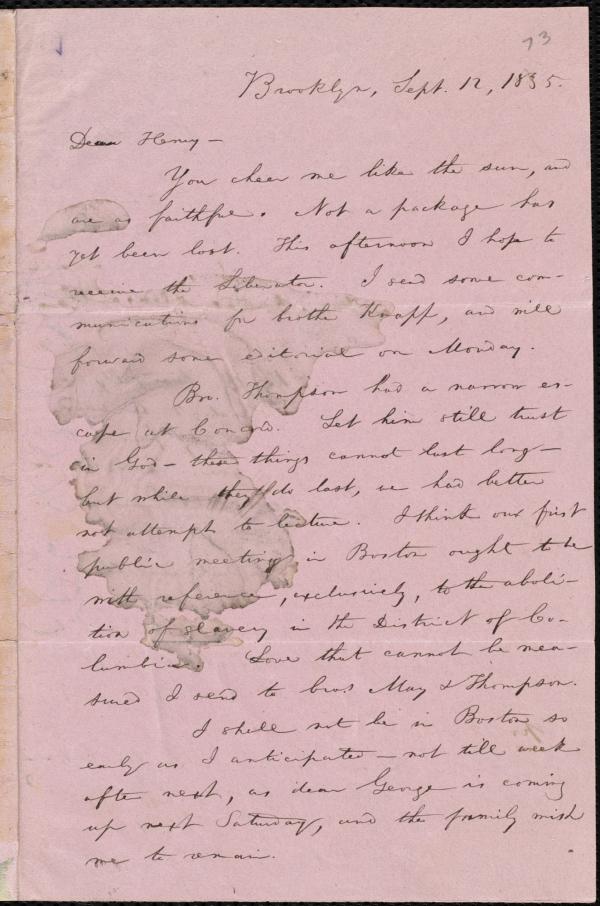 73
Brooklyn, Sept. 12, 1835.
Dear Henry—
You cheer me like the sun, and
are as faithful. Not a package has
yet been lost. This afternoon I hope to
receive the Liberator. I send some com-
munications for brother Knapp, and will
forward some editorial on Monday.
Bro. Thompson had a narrow es-
cape at Concord. Let him still trust
in God—these things cannot last long—
but while they do last, we had better
not attempt to lecture. I think our first
public meeting in Boston ought to be
with reference, exclusively, to the aboli-
tion of slavery in the District of Co-
lumbia. Love that cannot be mea-
sured I send to bros. May & Thompson.
I shall not be in Boston so
early as I anticipated—not till week
after next, as dear George is coming
up next Saturday, and the family wish
me to remain.